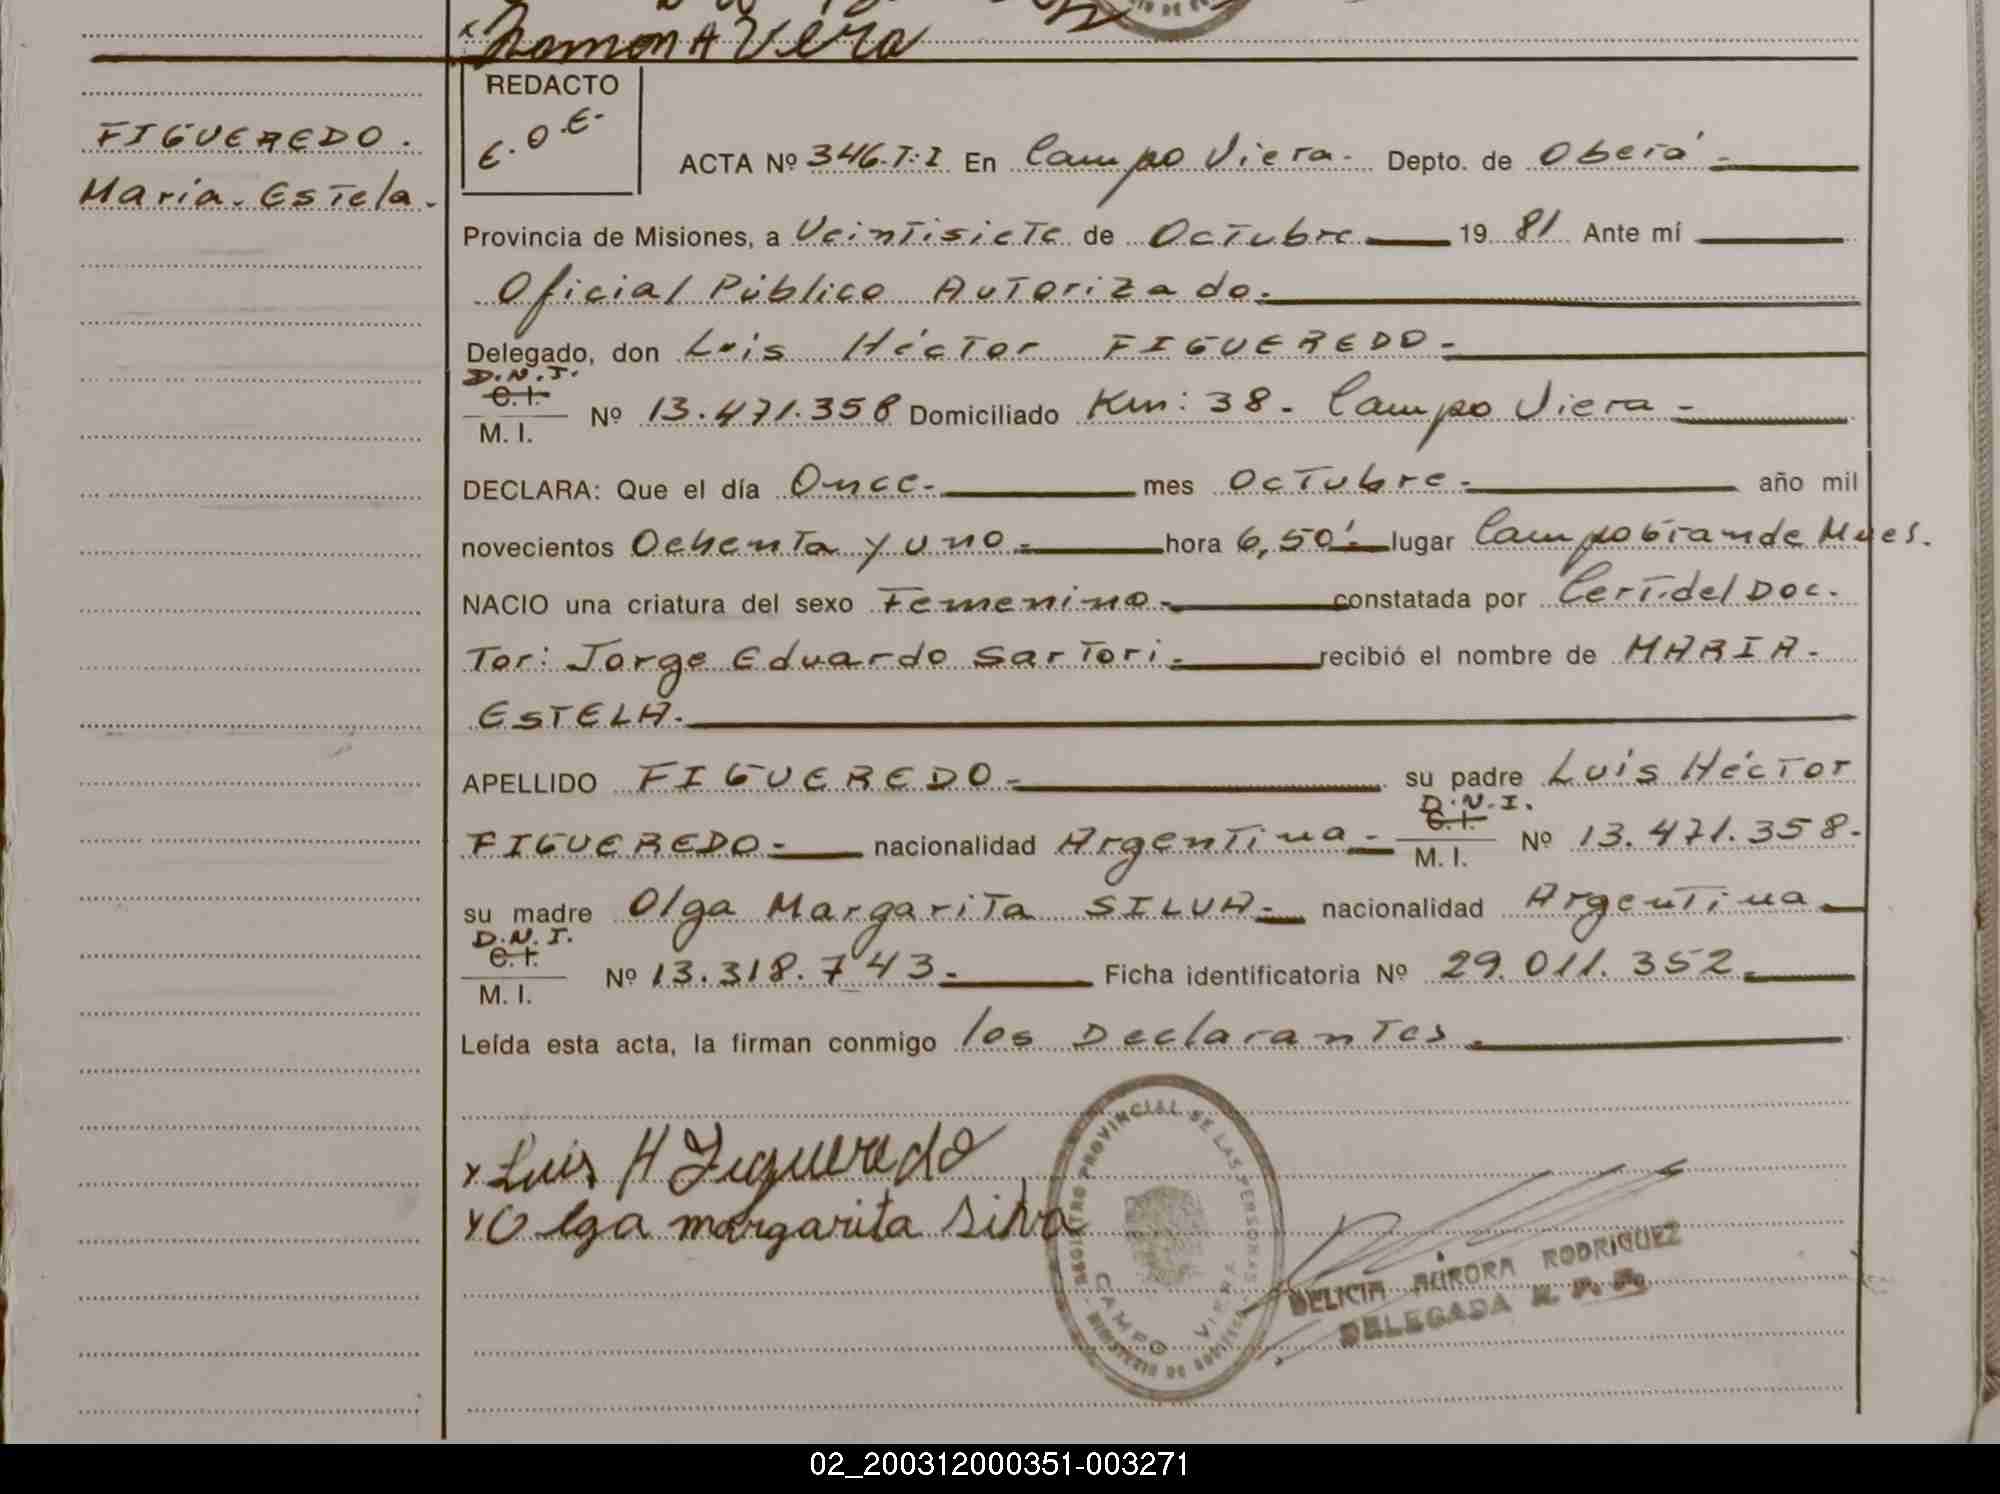 Ramon A Vera
REDACTO
E.O.E.
FIGUEREDO.
Maria. Estela.
ACTA Nº 346.T:I En Campo Viera. Depto. de Oberá
Provincia de Misiones, a Veintisiete de Octubre 19 81 Ante mí
Oficial Público Autorizado.
Delegado, don Luis Héctor FIGUEREDO.
D.N.I.
C.I.
M. I. Nº 13.471.358 Domiciliado Km: 38. Campo Viera
DECLARA: Que el día Once. mes Octubre. año mil
novecientos Ochenta y uno. hora 6,50'. lugar Campo Grande Mnes.
NACIO una criatura del sexo Femenino. constatada por Cert. del Doc.
Tor: Jorge Eduardo Sartori. recibió el nombre de MARIA
ESTELA.
APELLIDO FIGUEREDO. su padre Luis Héctor
D.N.I.
C.I.
FIGUEREDO. nacionalidad Argentina. M. I. Nº 13.471.358.
su madre Olga Margarita SILVA. nacionalidad Argentina
D.N.I.
C.I.
M. I. Nº 13.318.743. Ficha identificatoria Nº 29.011.352.
Leída esta acta, la firman conmigo los Declarantes.
x Luis H Figueredo
x Olga margarita Silva
REGISTRO PROVINCIAL DE LAS PERSONAS
CAMPO VIERA
MINISTERIO DE
DELICIA AURORA RODRIGUEZ
DELEGADA R. P. P.
02_200312000351-003271